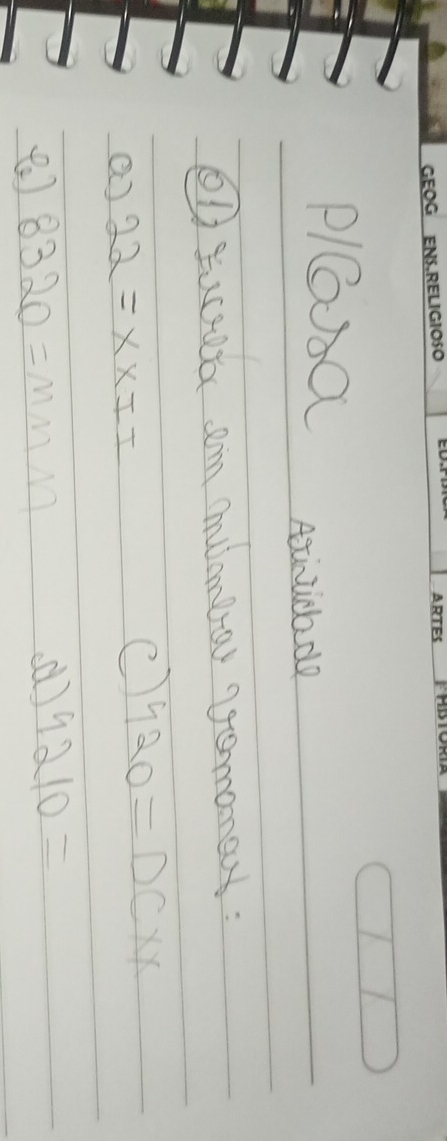 GEOG ENS.RELIGIOSO ARTES HISTÓRIA
P/Casa
Atividade
01) Escreva em números romanos:
a) 22 = XXII c) 420 = DCXX
b) 8320 = MMM d) 4210 =